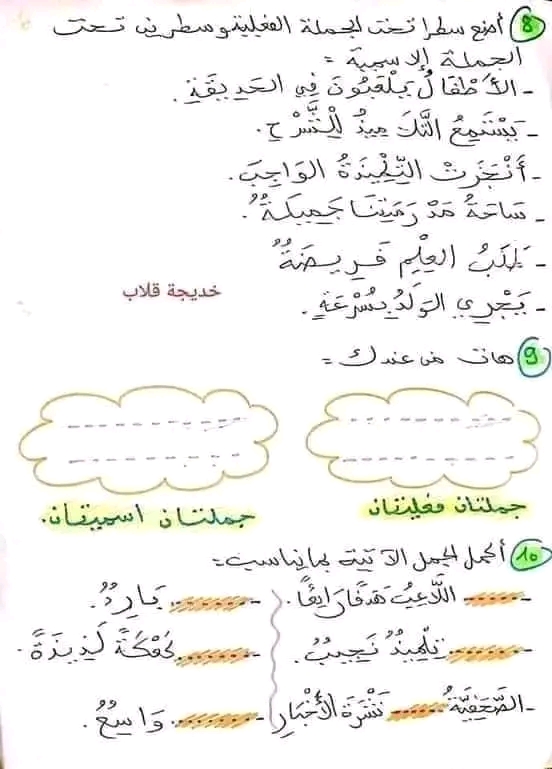 8 أضع سطرا تحت الجملة الفعلية وسطرين تحت
الجملة الاسمية =
- الأَطْفَالُ يَلْعَبُونَ فِي الحَدِيقَةِ.
- يَسْتَمِعُ التِّلْمِيذُ لِلشَّرْحِ.
- أَنْجَزَتْ التِّلْمِيذَةُ الوَاجِبَ.
- سَاحَةُ مَدْرَسَتِنَا جَمِيلَةٌ.
- طَلَبُ العِلْمِ فَرِيضَةٌ
خديجة قلاب
- يَجْرِي الوَلَدُ بِسُرْعَةٍ.
9 هات من عندك =
جملتان فعليتان
جملتان اسميتان.
10 أكمل الجمل الآتية بما يناسب =
- ..... اللَّاعِبُ هَدَفًا رَائِعًا.
- ..... بَارِدٌ.
- ..... تِلْمِيذٌ نَجِيبٌ.
- ..... كَعْكَةً لَذِيذَةً.
- الصَّحَفِيَّةُ ..... نَشْرَةَ الأَخْبَارِ
- ..... وَاسِعٌ.